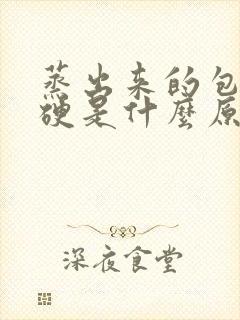 蒸出来的包
硬是什麼原
深夜食堂